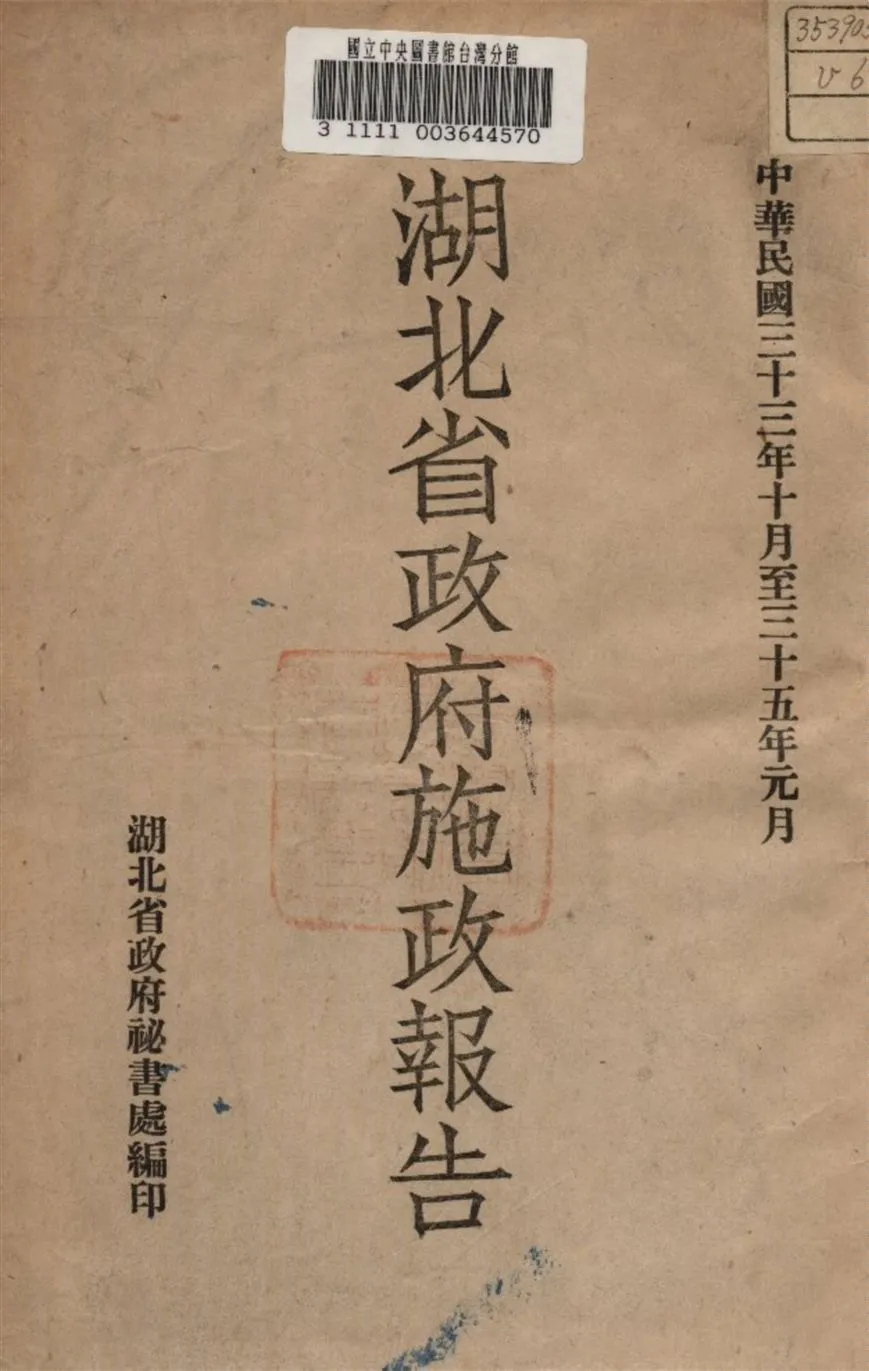 國立中央圖書館台灣分館
3 1111 003644570
353905
v 6
中華民國三十三年十月至三十五年元月
湖北省政府施政報告
湖北省政府祕書處編印